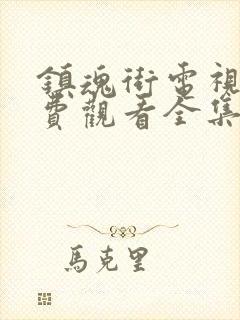 鎮魂街電視
費觀看全集
馬克里